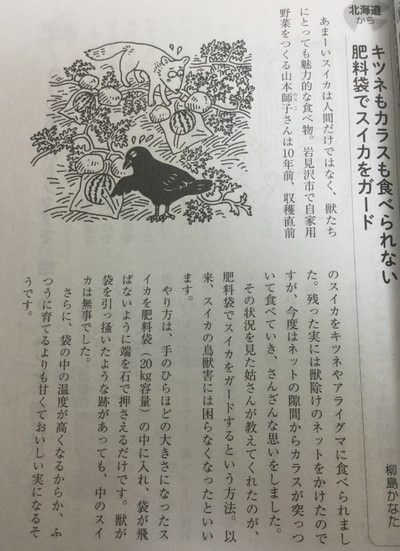 北海道
から
キツネもカラスも食べられない
肥料袋でスイカをガード
柳島かなた
あまーいスイカは人間だけではなく、獣たち
にとっても魅力的な食べ物。岩見沢市で自家用
野菜をつくる山本師子さんは10年前、収穫直前
のスイカをキツネやアライグマに食べられまし
た。残った実には獣除けのネットをかけたので
すが、今度はネットの隙間からカラスが突っつ
いて食べていき、さんざんな思いをしました。
その状況を見た姑さんが教えてくれたのが、
肥料袋でスイカをガードするという方法。以
来、スイカの鳥獣害には困らなくなったといい
ます。
やり方は、手のひらほどの大きさになったス
イカを肥料袋（20kg容量）の中に入れ、袋が飛
ばないように端を石で押さえるだけです。獣が
袋を引っ掻いたような跡があっても、中のスイ
カは無事でした。
さらに、袋の中の温度が高くなるからか、ふ
つうに育てるよりも甘くておいしい実になるそ
うです。